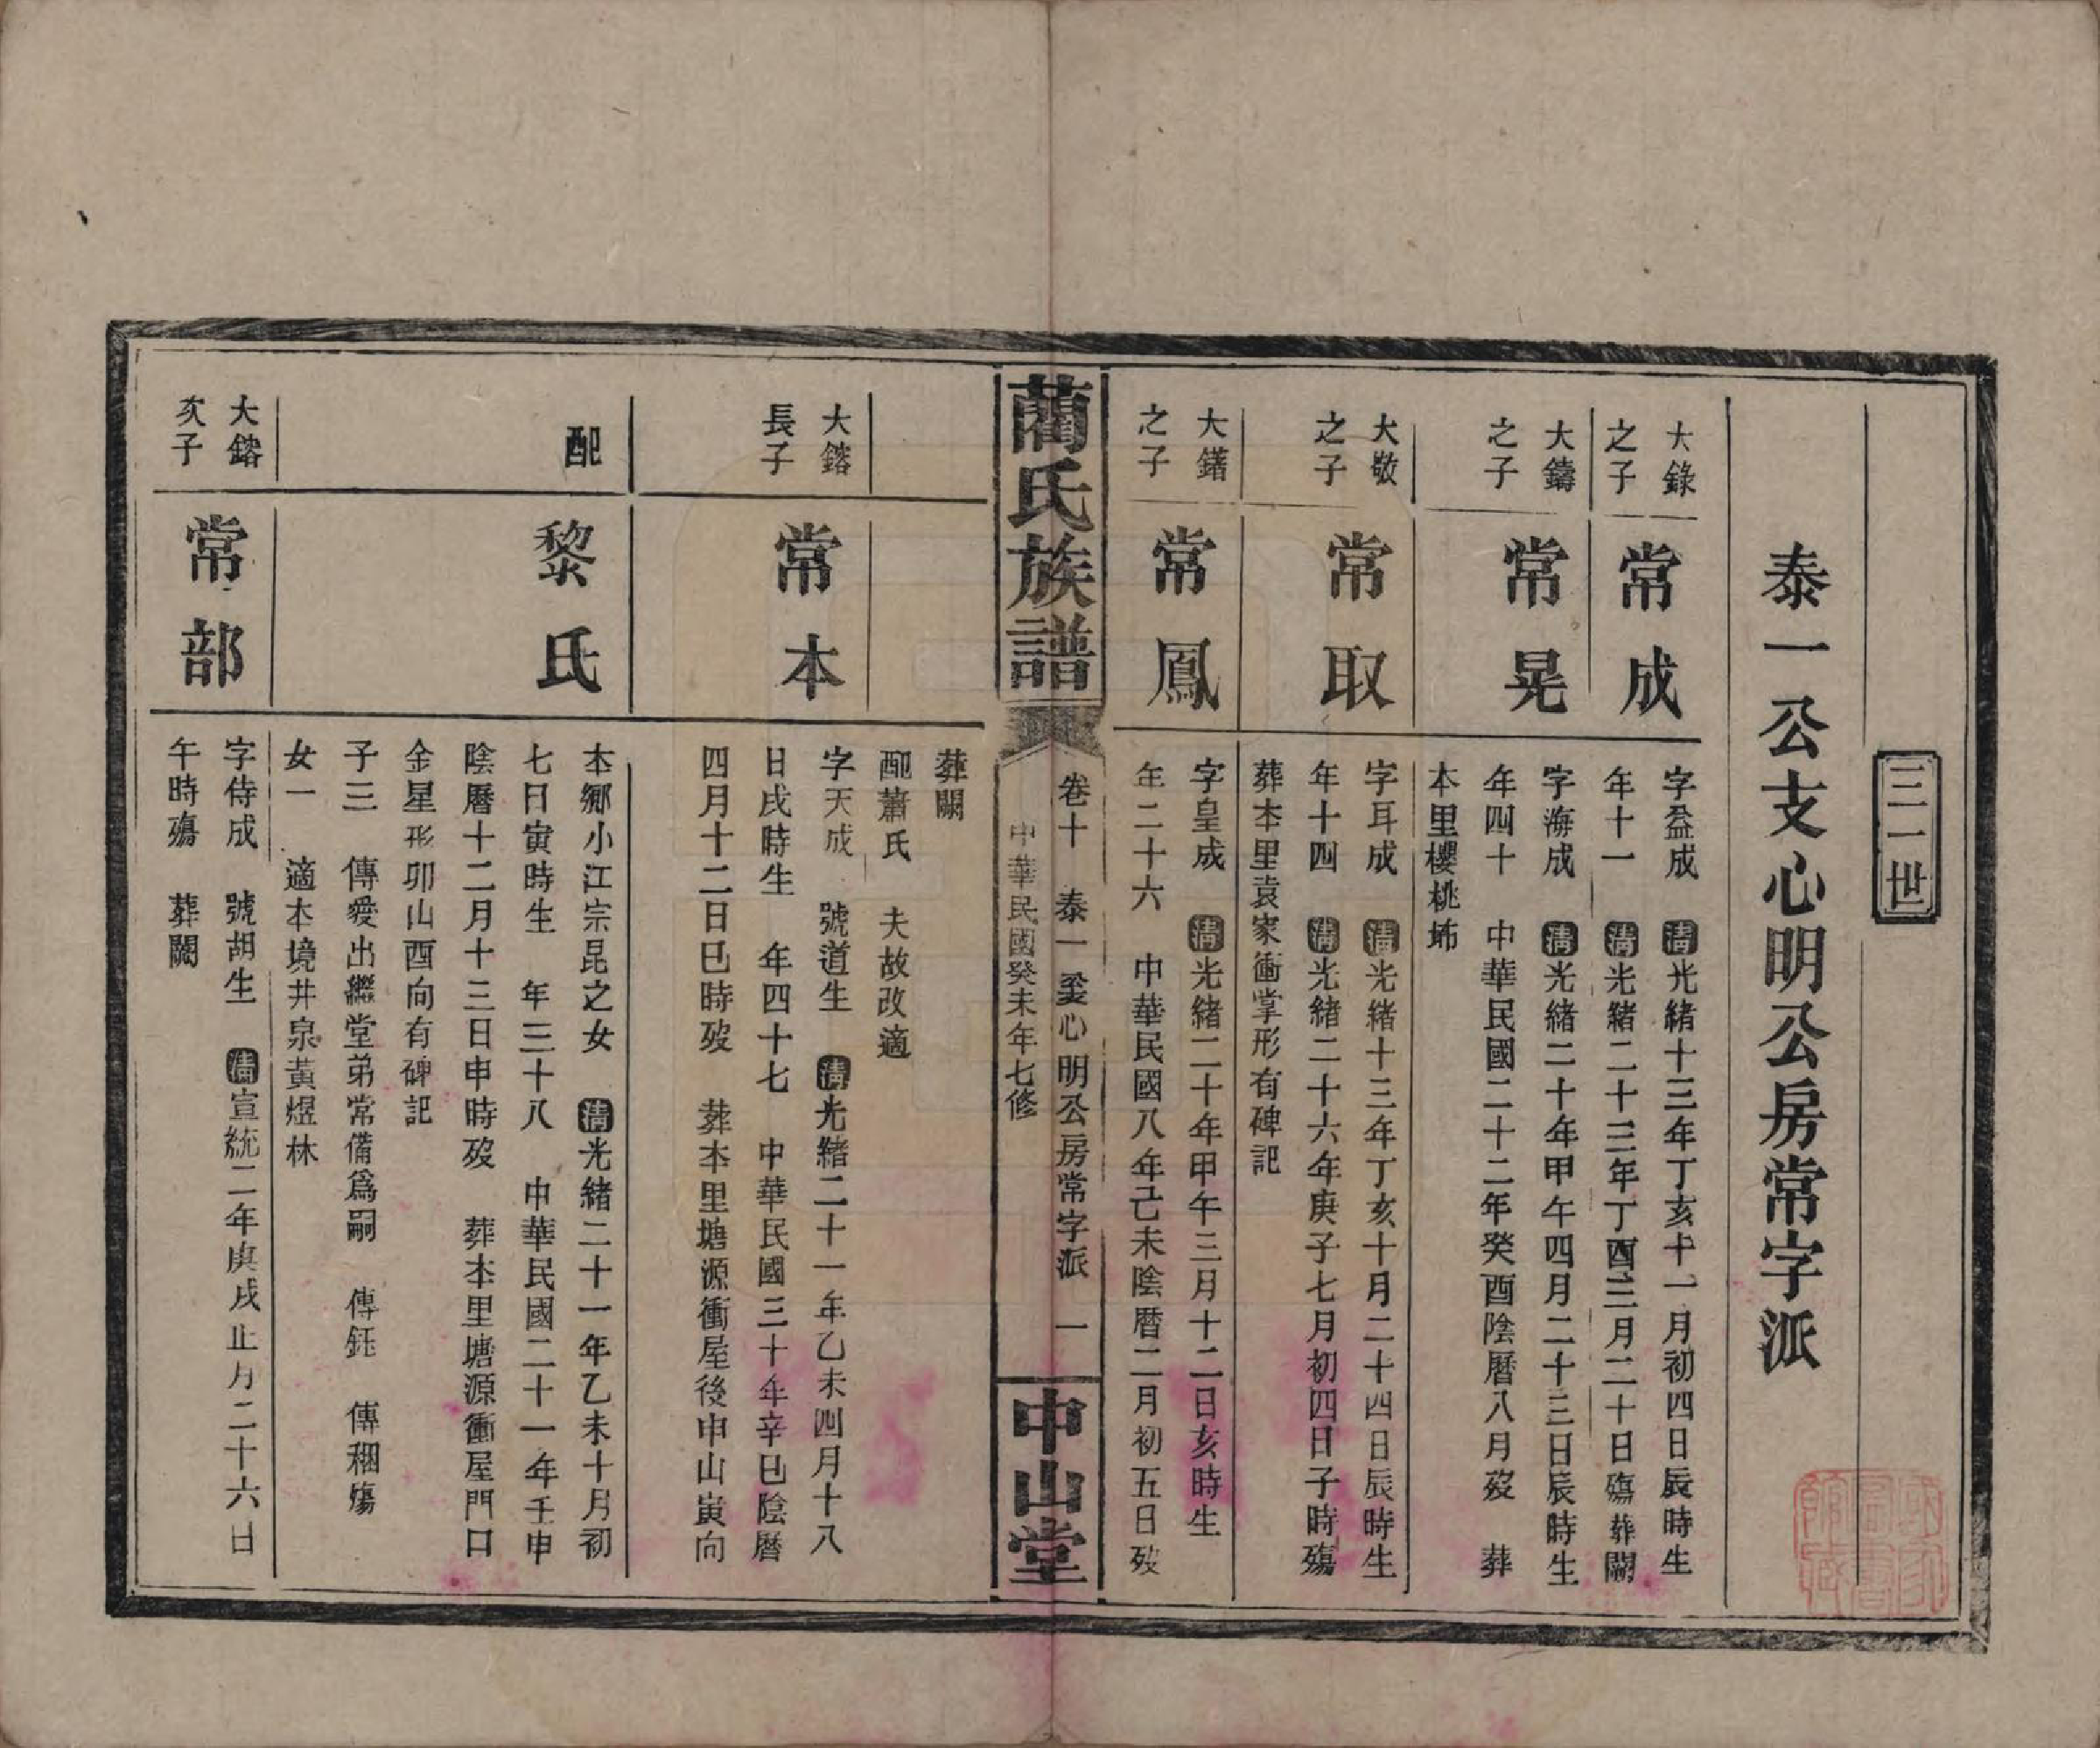 三一世
泰一公支心明公房常字派
大錄之子
常成
字益成 清光緒十三年丁亥十一月初四日辰時生
年十一 清光緒二十三年丁酉三月二十日殤葬闕
大鑄之子
常晃
字海成 清光緒二十年甲午四月二十三日辰時生
年四十 中華民國二十二年癸酉陰曆八月歿 葬
本里櫻桃坳
大敬之子
常取
字耳成 清光緒十三年丁亥十月二十四日辰時生
年十四 清光緒二十六年庚子七月初四日子時殤
葬本里袁家衝掌形有碑記
大鐯之子
常鳳
字皇成 清光緒二十年甲午三月十二日亥時生
年二十六 中華民國八年己未陰曆二月初五日歿
藺氏族譜
卷十 泰一 心明公房常字派 一
中華民國癸未年七修
中山堂
葬闕
配蕭氏 夫故改適
大鎔長子
常本
字天成 號道生 清光緒二十一年乙未四月十八
日戌時生 年四十七 中華民國三十年辛巳陰曆
四月十二日巳時歿 葬本里塘源衝屋後申山寅向
配
黎氏
本鄉小江宗昆之女 清光緒二十一年乙未十月初
七日寅時生 年三十八 中華民國二十一年壬申
陰曆十二月十三日申時歿 葬本里塘源衝屋門口
金星形卯山酉向有碑記
子三 傳愛出繼堂弟常備爲嗣 傳鈺 傳稇殤
女一 適本境井泉黃煜林
大鎔次子
常部
字侍成 號胡生 清宣統二年庚戌正月二十六日
午時殤 葬闕